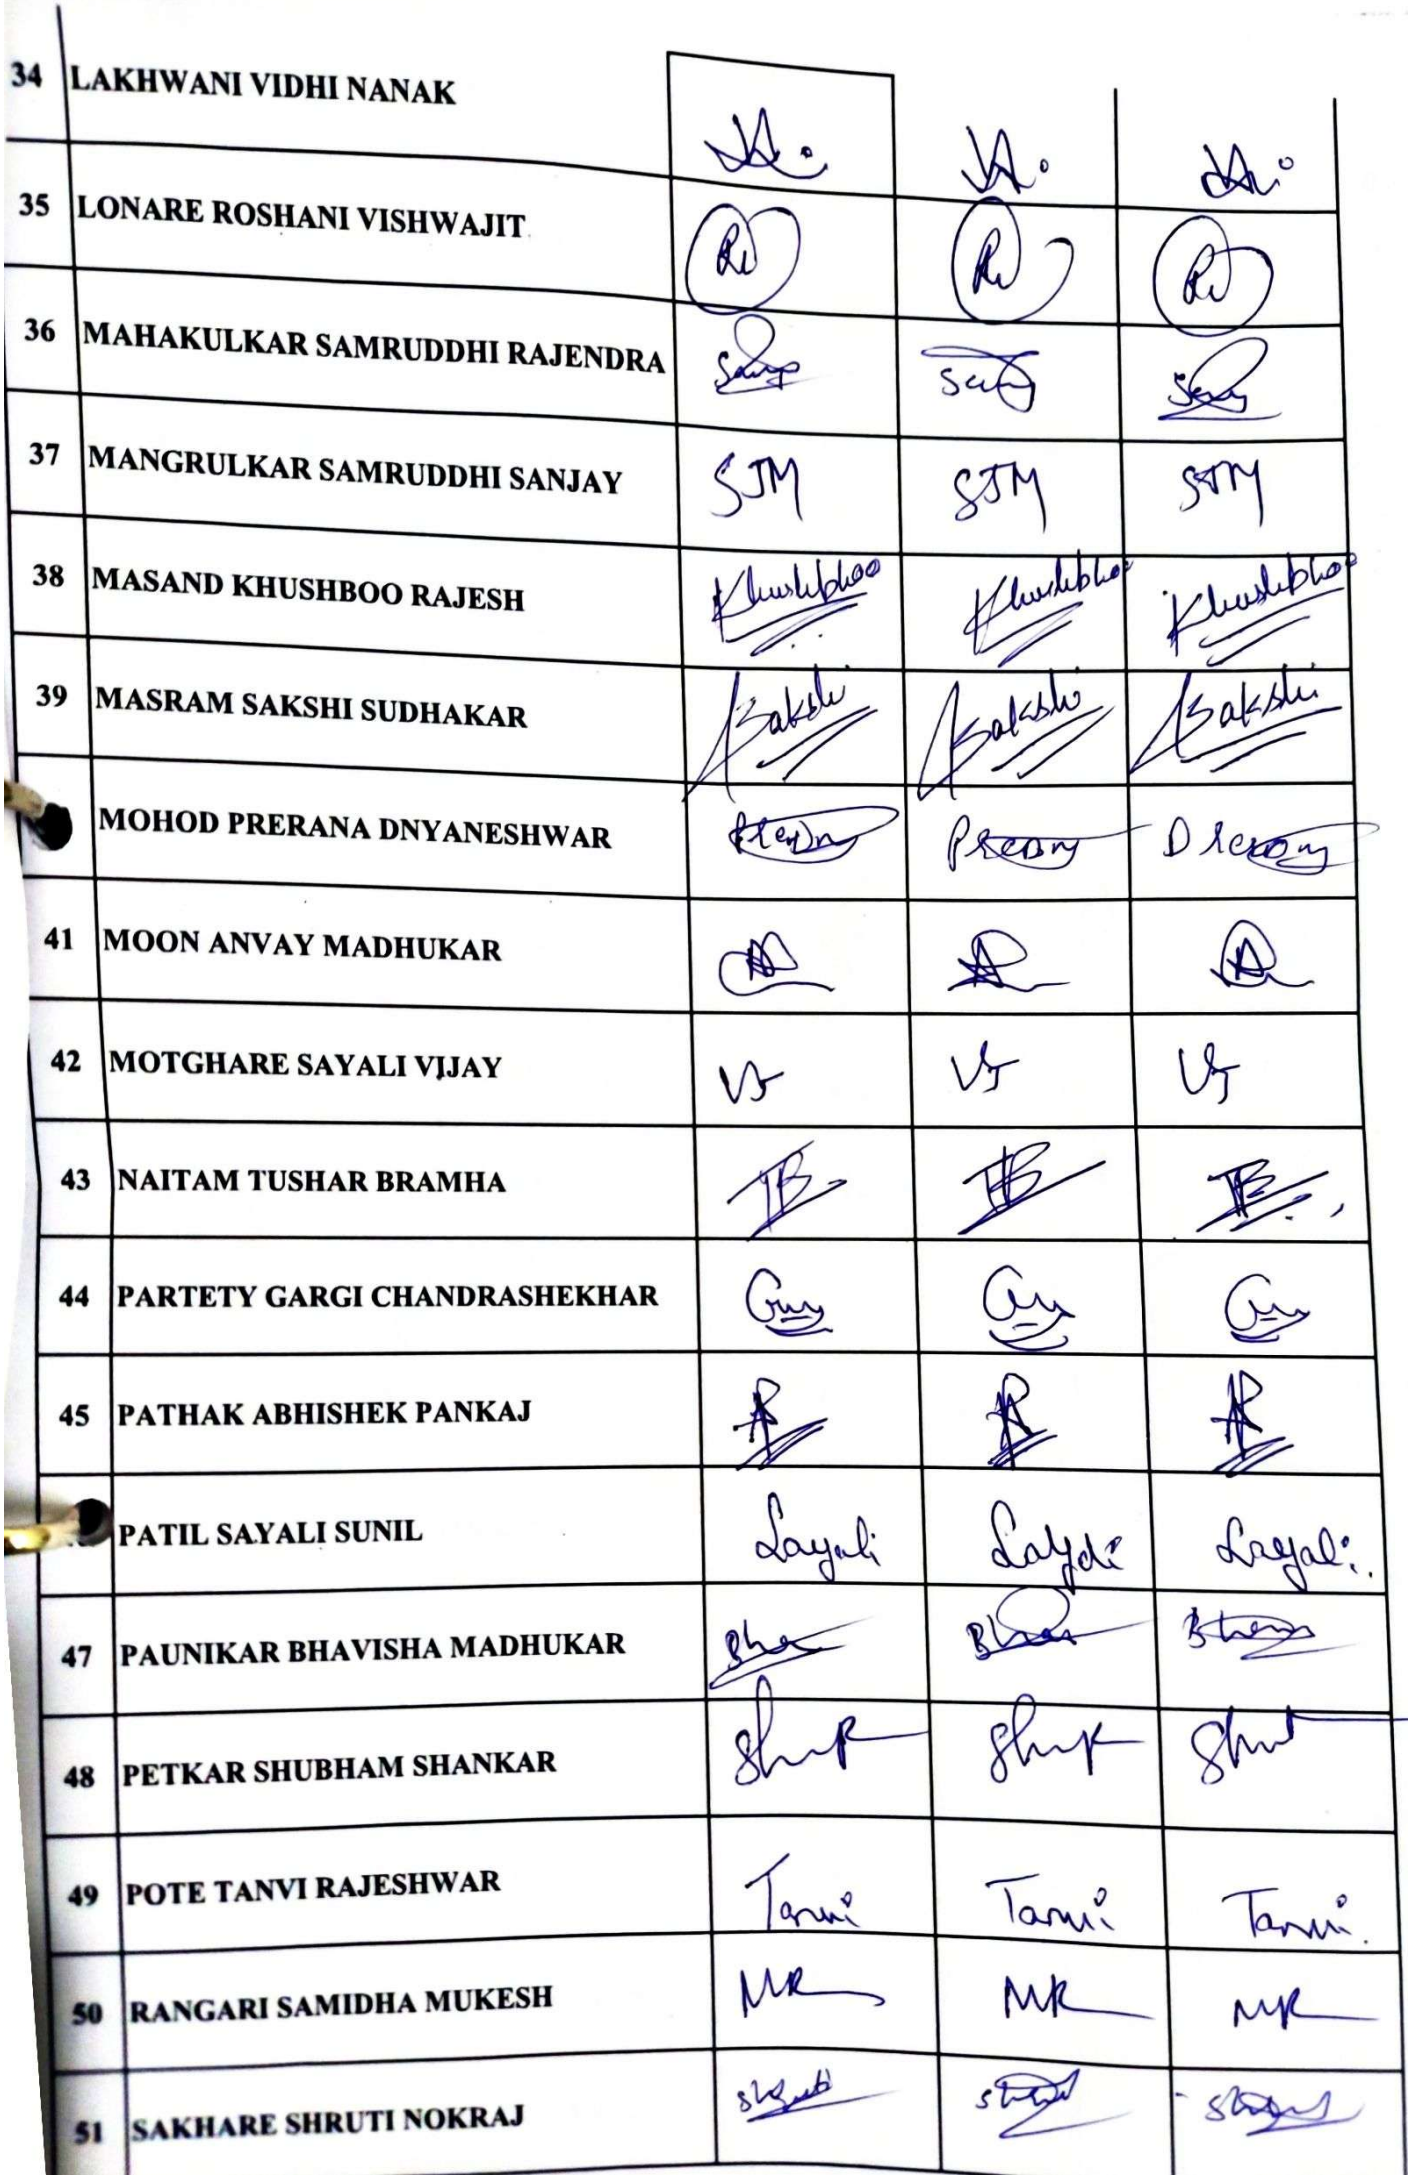 34 LAKHWANI VIDHI NANAK
35 LONARE ROSHANI VISHWAJIT
36 MAHAKULKAR SAMRUDDHI RAJENDRA
37 MANGRULKAR SAMRUDDHI SANJAY SJM SJM SJM
38 MASAND KHUSHBOO RAJESH Khushbhoo Khushbhoo Khushbhoo
39 MASRAM SAKSHI SUDHAKAR Sakshi Sakshi Sakshi
MOHOD PRERANA DNYANESHWAR
41 MOON ANVAY MADHUKAR
42 MOTGHARE SAYALI VIJAY
43 NAITAM TUSHAR BRAMHA TB TB TB
44 PARTETY GARGI CHANDRASHEKHAR
45 PATHAK ABHISHEK PANKAJ AP AP AP
PATIL SAYALI SUNIL Sayali Sayali Sayali
47 PAUNIKAR BHAVISHA MADHUKAR
48 PETKAR SHUBHAM SHANKAR
49 POTE TANVI RAJESHWAR Tanvi Tanvi Tanvi
50 RANGARI SAMIDHA MUKESH MR MR MR
51 SAKHARE SHRUTI NOKRAJ